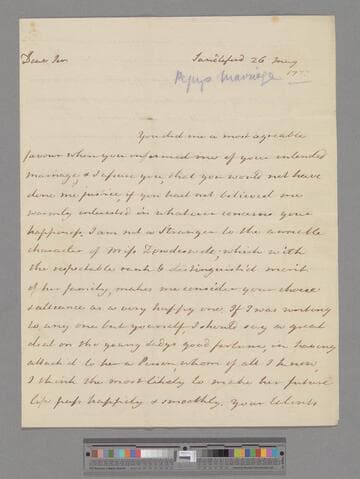 Dear Sir
Sandleford 26 May
Pepys Marriage 177
You did me a most agreable
favour when you informed me of your intended
marriage, & I assure you, that you would not have
done me justice, if you had not believed me
warmly interested in whatever concerns your
happiness. I am not a stranger to the amiable
character of Miss Dowdeswell; which with
the respectable rank & distinguish'd merit
of her family, makes me consider your choice
& alliance as a very happy one. If I was writing
to any one but yourself, I should say a great
deal on the young Ladys good fortune, in having
attach'd to her a Person, whom of all I know,
I think the most likely to make her future
life pass happily & smoothly. Your talents